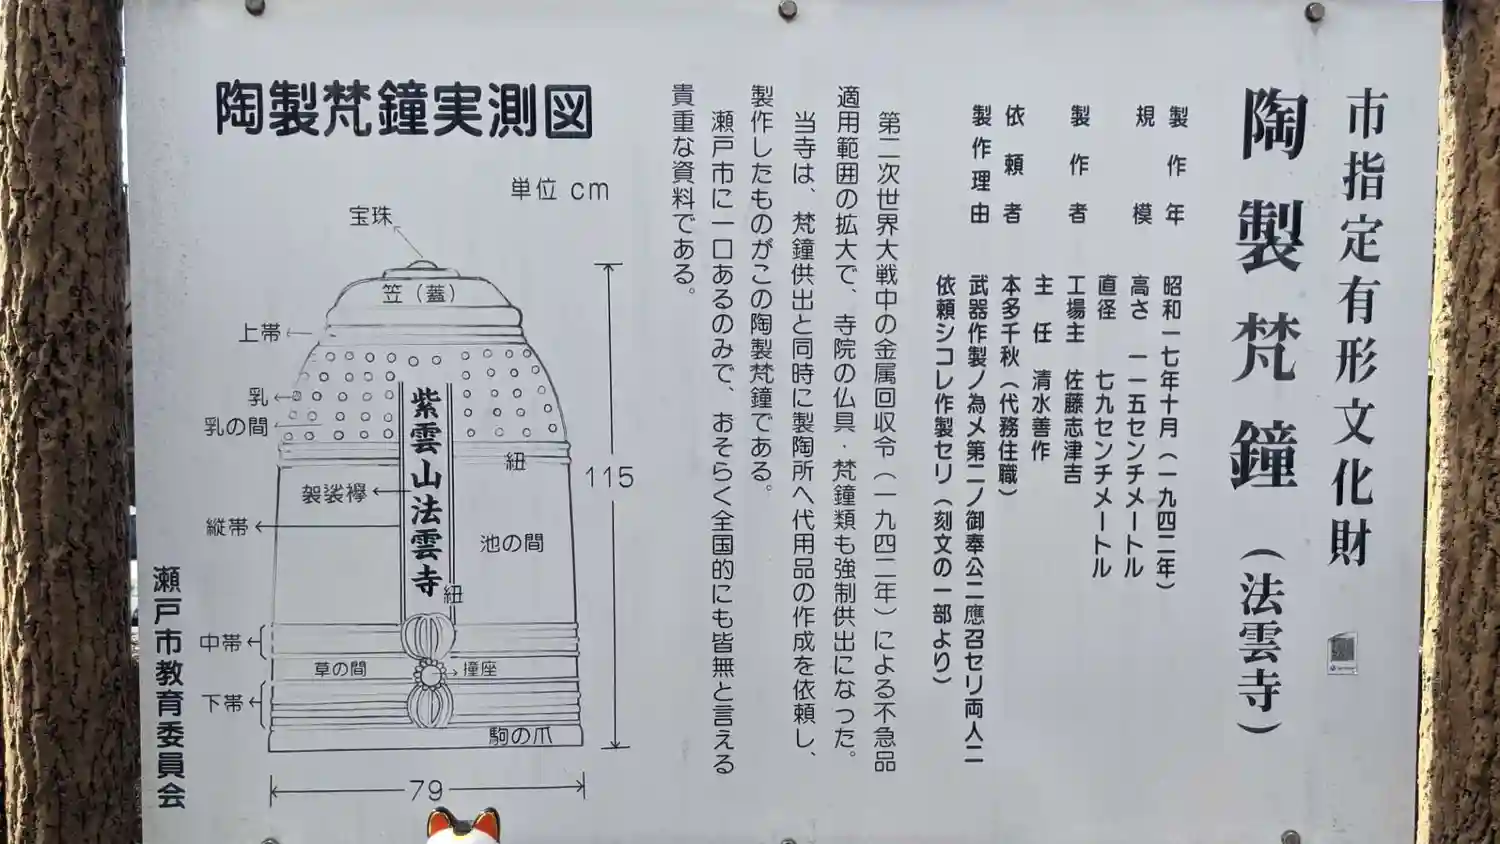 市指定有形文化財
陶製梵鐘(法雲寺)
製作年 昭和一七年十月(一九四二年)
規模 高さ 一一五センチメートル
直径 七九センチメートル
製作者 工場主 佐藤志津吉
主任 清水善作
依頼者 本多千秋(代務住職)
製作理由 武器作製ノ為メ第二ノ御奉公ニ應召セリ両人ニ
依頼シコレ作製セリ(刻文の一部より)
第二次世界大戦中の金属回収令(一九四二年)による不急品
適用範囲の拡大で、寺院の仏具・梵鐘類も強制供出になった。
当寺は、梵鐘供出と同時に製陶所へ代用品の作成を依頼し、
製作したものがこの陶製梵鐘である。
瀬戸市に一口あるのみで、おそらく全国的にも皆無と言える
貴重な資料である。
陶製梵鐘実測図
単位 cm
宝珠
笠(蓋)
上帯
乳
乳の間
紐
袈裟襷
縦帯
池の間
紫雲山法雲寺
紐
中帯
草の間
撞座
下帯
駒の爪
115
79
瀬戸市教育委員会